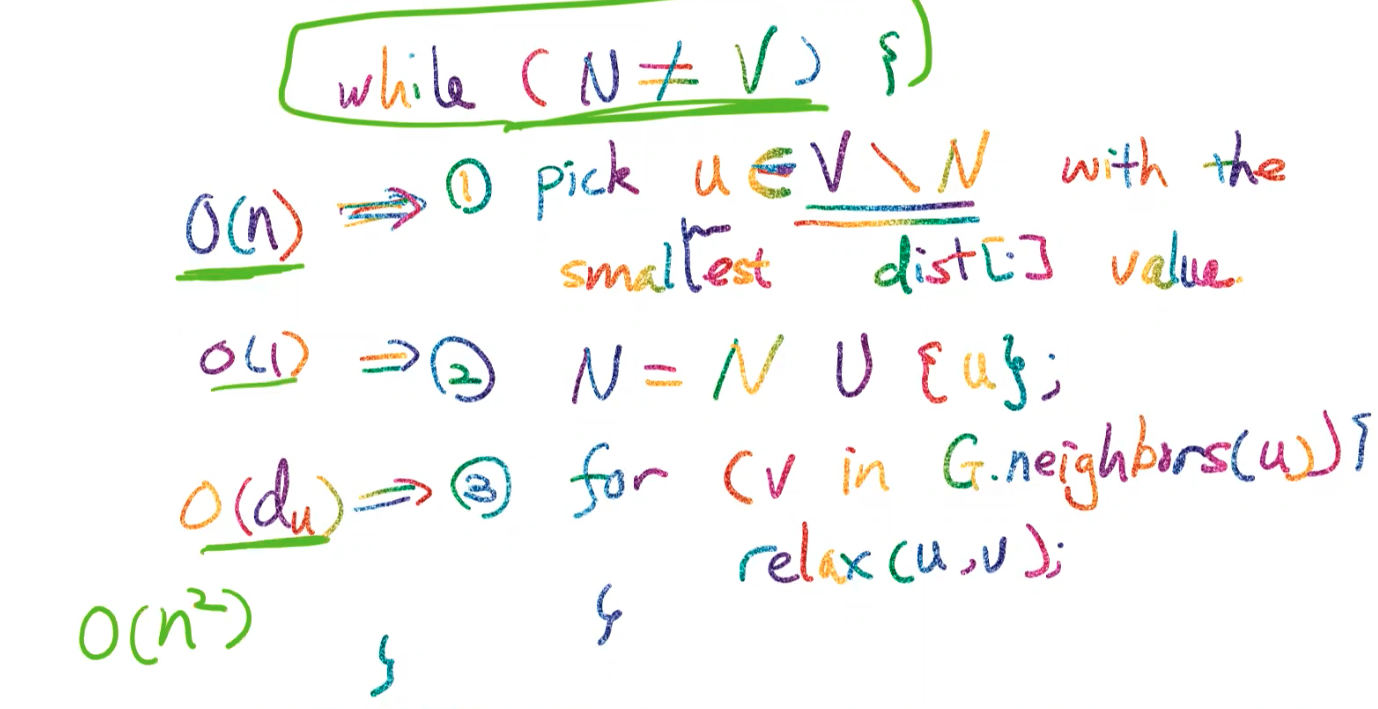 while ( N ≠ V ) {
O(n) ⇒ ① pick u ∈ V \ N with the
smallest dist[·] value
O(1) ⇒ ② N = N ∪ {u};
O(d_u) ⇒ ③ for (v in G.neighbors(u)) {
relax(u,v);
O(n²) }
}